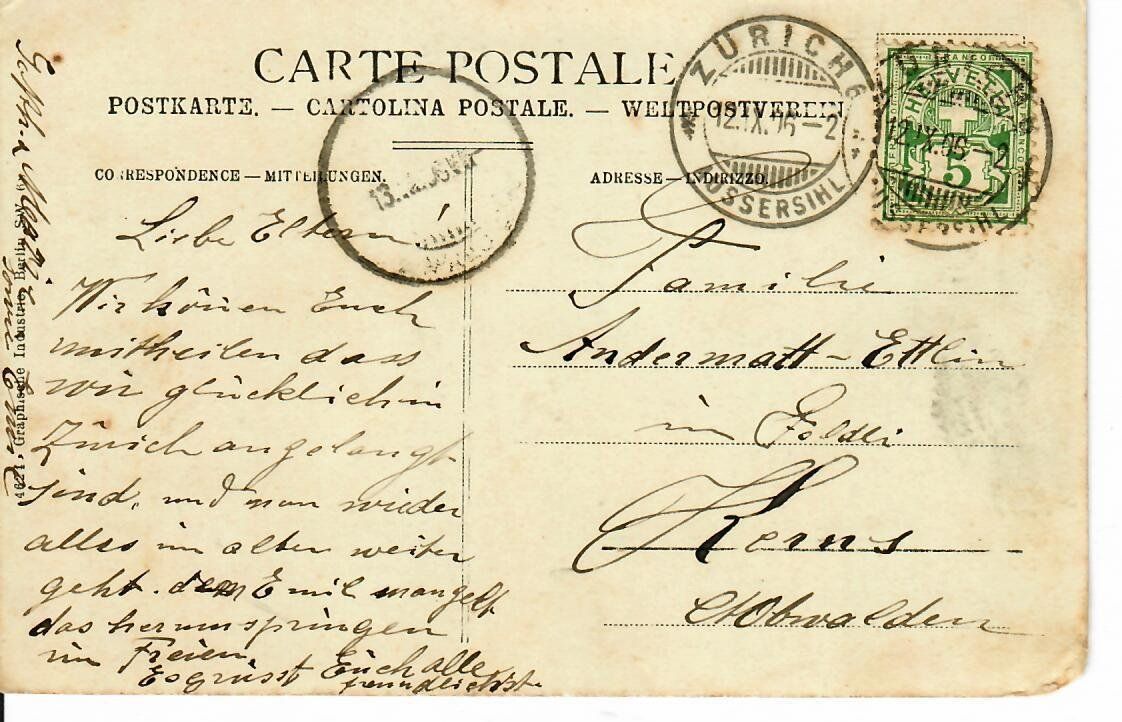 CARTE POSTALE
POSTKARTE. — CARTOLINA POSTALE. — WELTPOSTVEREIN
CORRESPONDENCE — MITTEILUNGEN.
ADRESSE — INDIRIZZO.
ZÜRICH 6
12.IX.06-2
AUSSERSIHL
HELVETIA
FRANCO
5
12.IX.06-2
Liebe Eltern!
Wir können Euch
mitheilen dass
wir glücklich in
Zürich angelangt
sind, und nun wieder
alles im alten weiter
geht. dem Emil mangelt
das herumspringen
im Freien
Es grüsst Euch alle
freundlichst
Familie
Andermatt-Ettlin
im Feldli
Kerns
Obwalden
4621. Graphische Industrie, Berlin SW